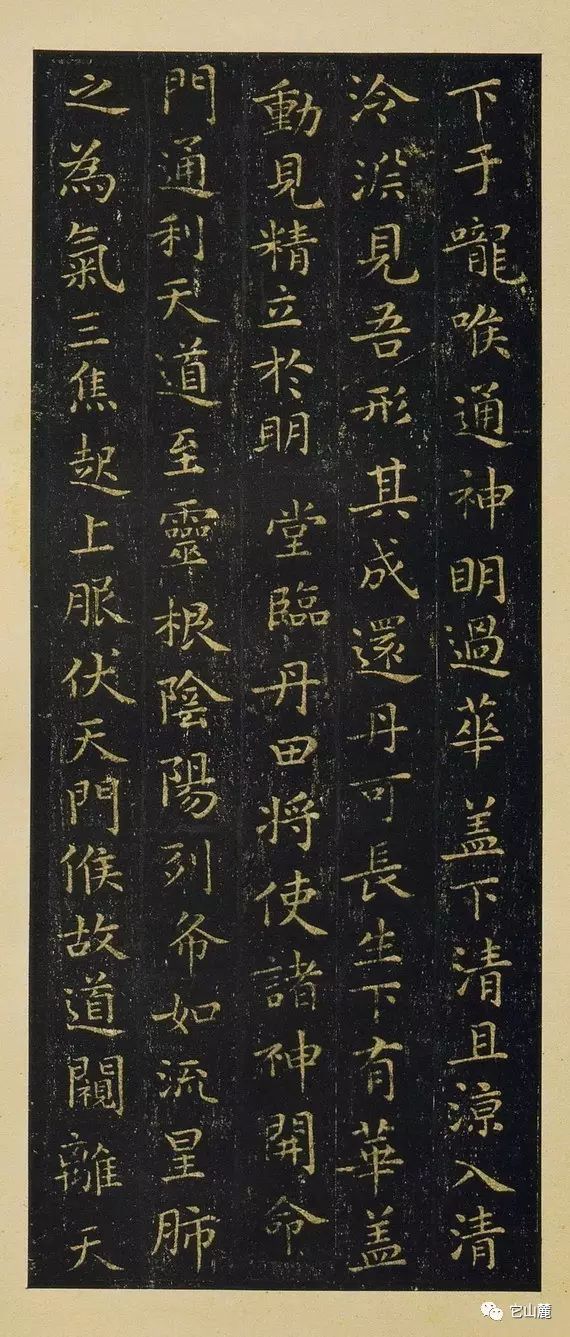 下于嚨喉通神明過華盖下清且涼入清
泠渊見吾形其成還丹可長生下有華盖
動見精立於明堂臨丹田将使諸神開命
門通利天道至靈根陰陽列布如流星肺
之為氣三焦起上服伏天門候故道闚離天
它山麓